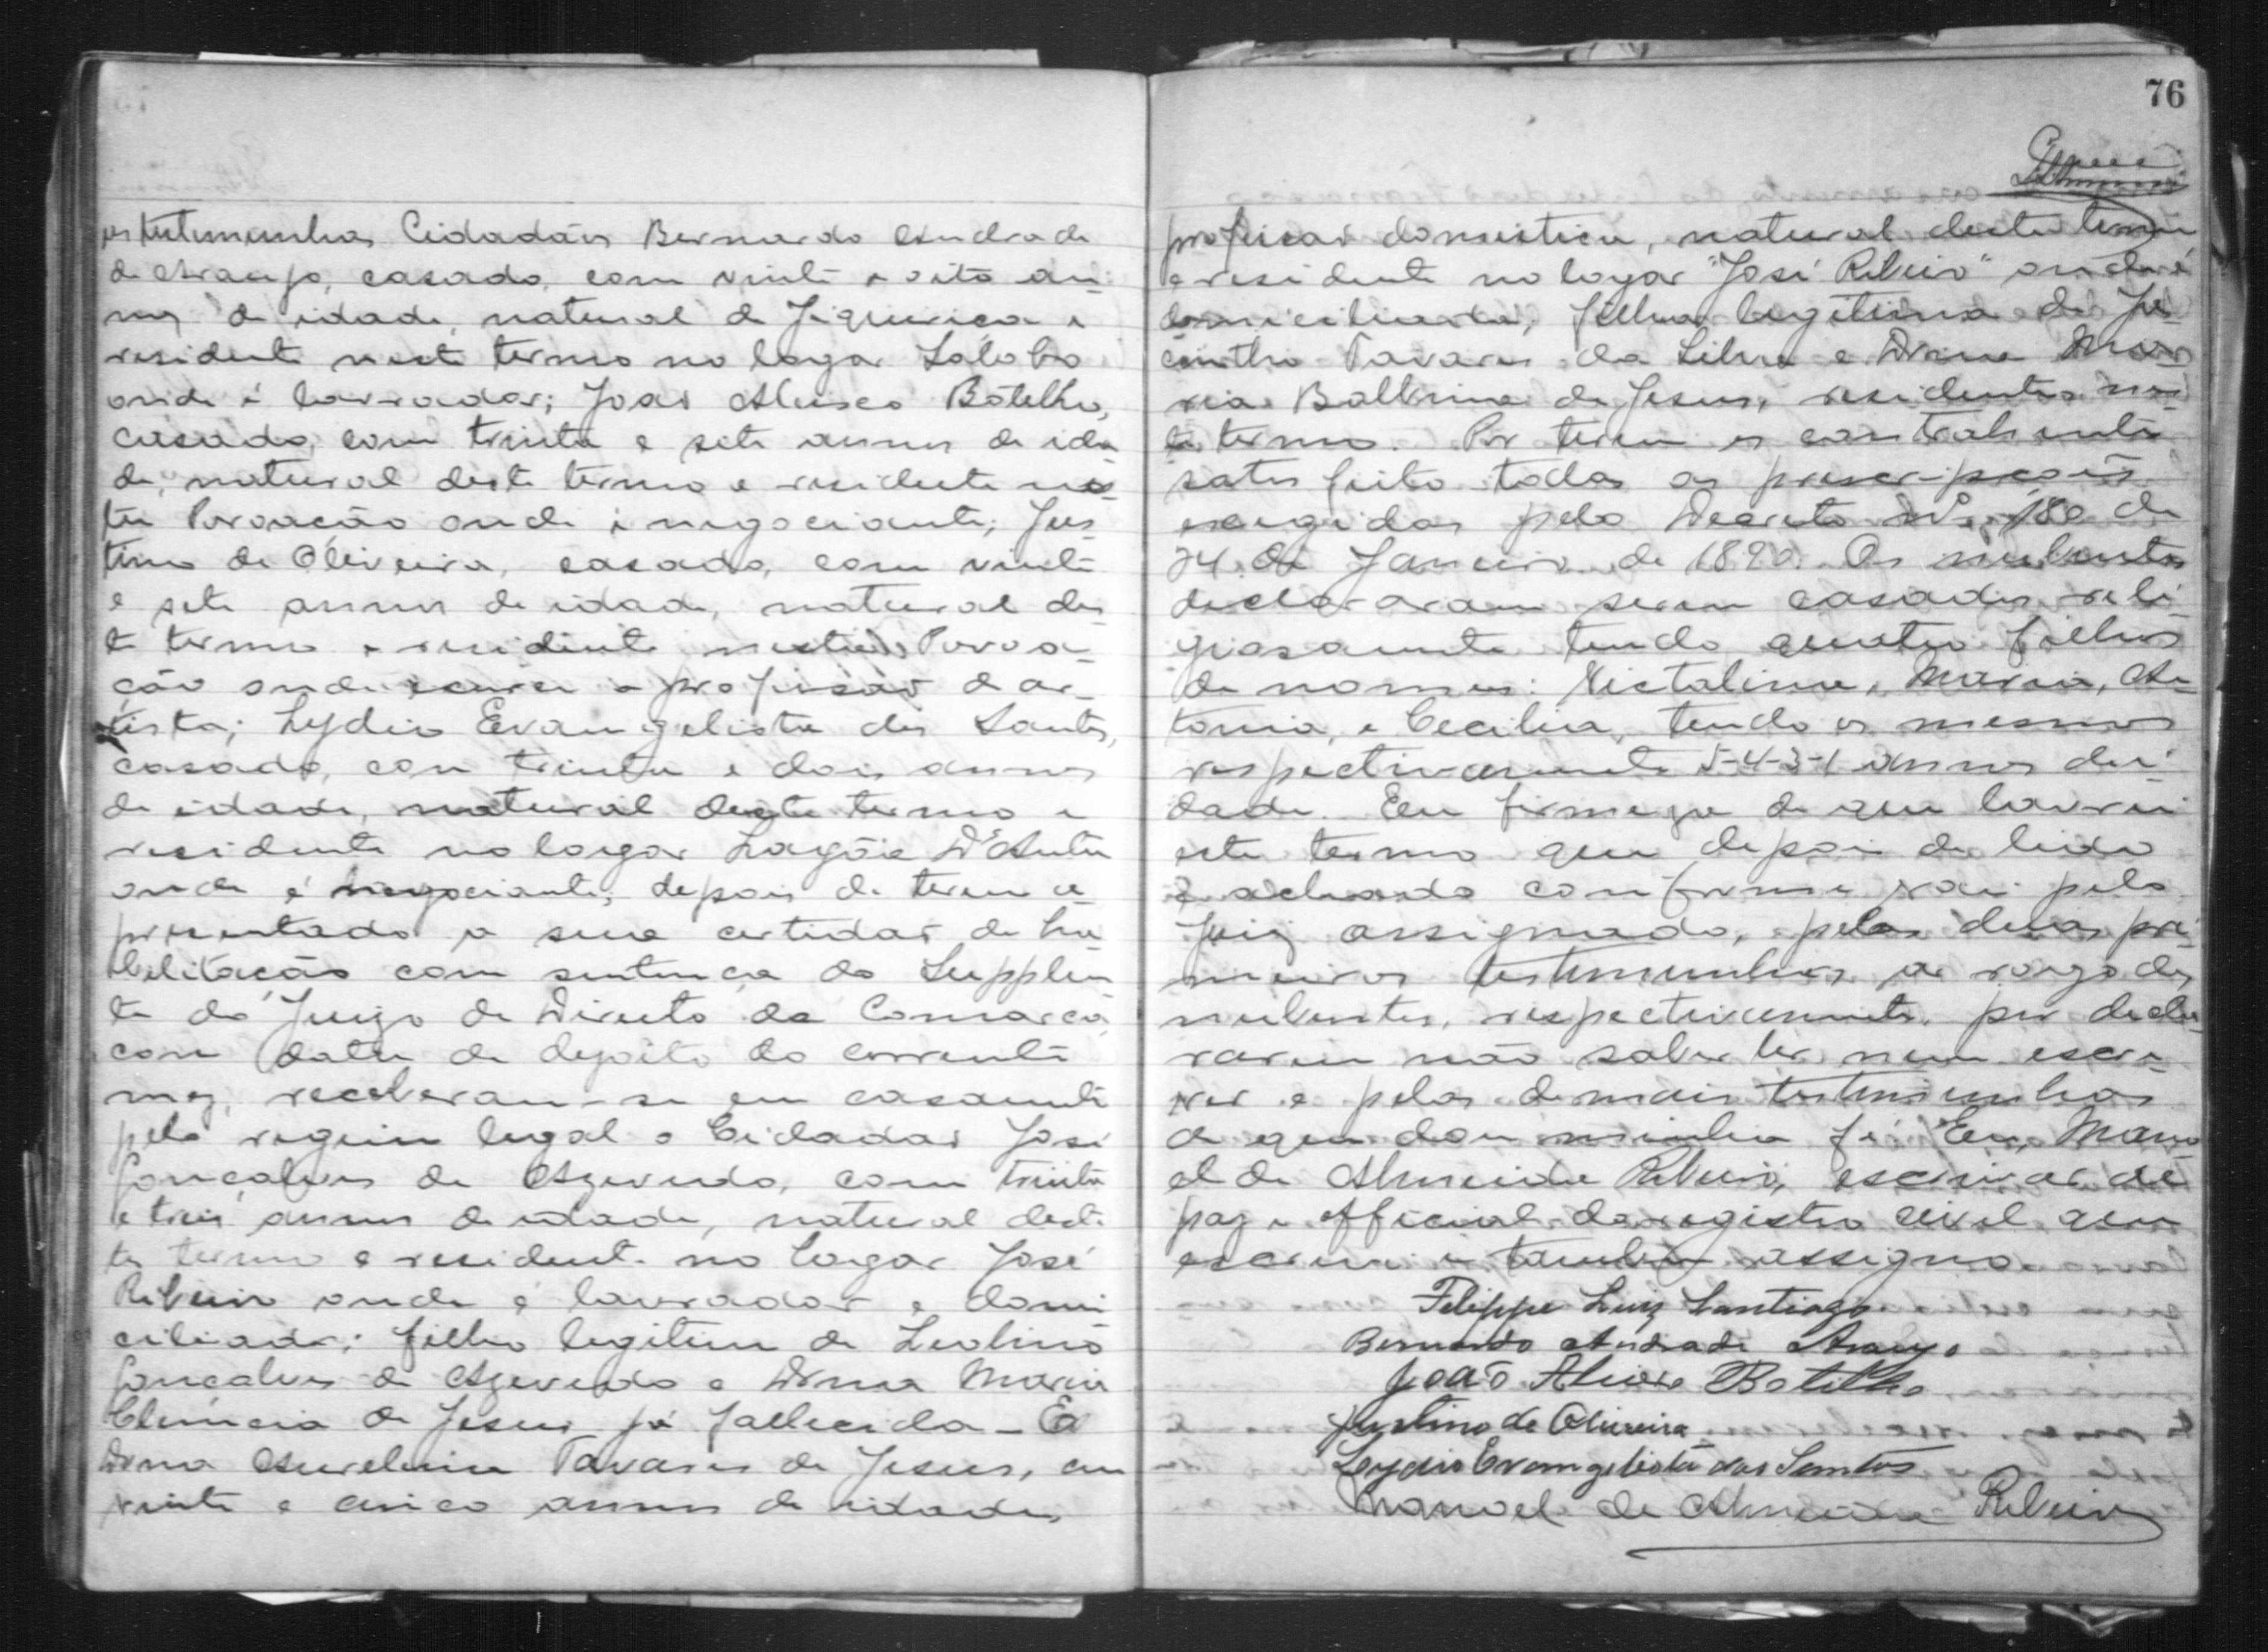 as testemunhas Cidadãos Bernardo Andrade
de Araujo, casado, com vinte e oito an-
nos de idade, natural de Jiquiriça e
residente neste termo no logar Lolobo
onde é lavrador; João Botelho,
casado, com trinta e sete annos de ida-
de, natural deste termo e residente nes-
ta Povoação onde é negociante; Jus-
tino de Oliveira, casado, com vinte
e sete annos de idade, natural des-
te termo e residente nesta Povoa-
ção onde exerce a profissão de ar-
tista; Lydio Evangelista dos Santos,
casado, com trinta e dois annos
de idade, natural deste termo e
residente no logar Lagôa D'Anta
onde é negociante; depois de terem a-
presentado a sua certidão de ha-
bilitação com sentença do Supplen-
te do Juizo de Direito da Comarca,
com data de do corrente
mez, receberam-se em casamento
pelo regimen legal o Cidadão José
Gonçalves de Azevedo, com trinta
e tres annos de idade, natural des-
te termo e residente no logar José
Ribeiro onde é lavrador e domi-
ciliado; filho legitimo de Leolino
Gonçalves de Azevedo e Dona Maria
Clemencia de Jesus já fallecida - E a
Dona Aurelina Tavares de Jesus, com
vinte e cinco annos de idade,
76
profissão domestica, natural deste termo
e residente no logar "José Ribeiro" onde é
domiciliada, filha legitima de Ja-
cintho Tavares da Silva e Dona Ma-
ria Balbina de Jesus, residentes nes-
te termo. Por terem os contrahentes
satisfeito todas as prescripções
exigidas pelo Decreto Nº 180 de
24 de Janeiro de 1890. Os nubentes
declararam serem casados reli-
giosamente tendo quatro filhos
de nomes: Vistalina, Maria, An-
tonia, e Cecilia, tendo os mesmos
respectivamente 5-4-3-1 annos de i-
dade. Em firmeza de que lavrei
este termo que depois de lido
e achado conforme vai pelo
Juiz assignado, pelas duas pri-
meiras testemunhas a rogo dos
nubentes, respectivamente, por decla-
rarem não saber ler nem escre-
ver e pelas demais testemunhas
de que dou minha fé. Eu, Mano-
el de Almeida Ribeiro, escrivão de
paz e official do registro civil que
escrevi e tambem assigno.
Felippe Luiz Santiago
Bernardo Andrade Araujo
João Botelho
Justino de Oliveira
Lydio Evangelista dos Santos
Manoel de Almeida Ribeiro